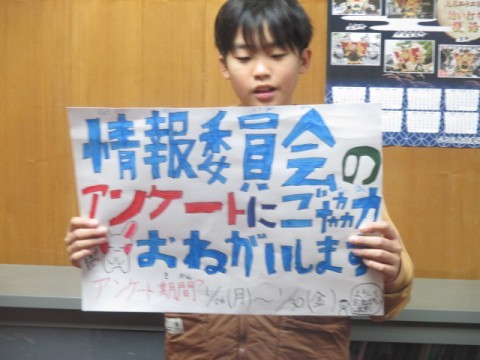 情報委員会の
アンケートにご協力
おねがいします
きかん
アンケート期間 1/26(月)～1/30(金)